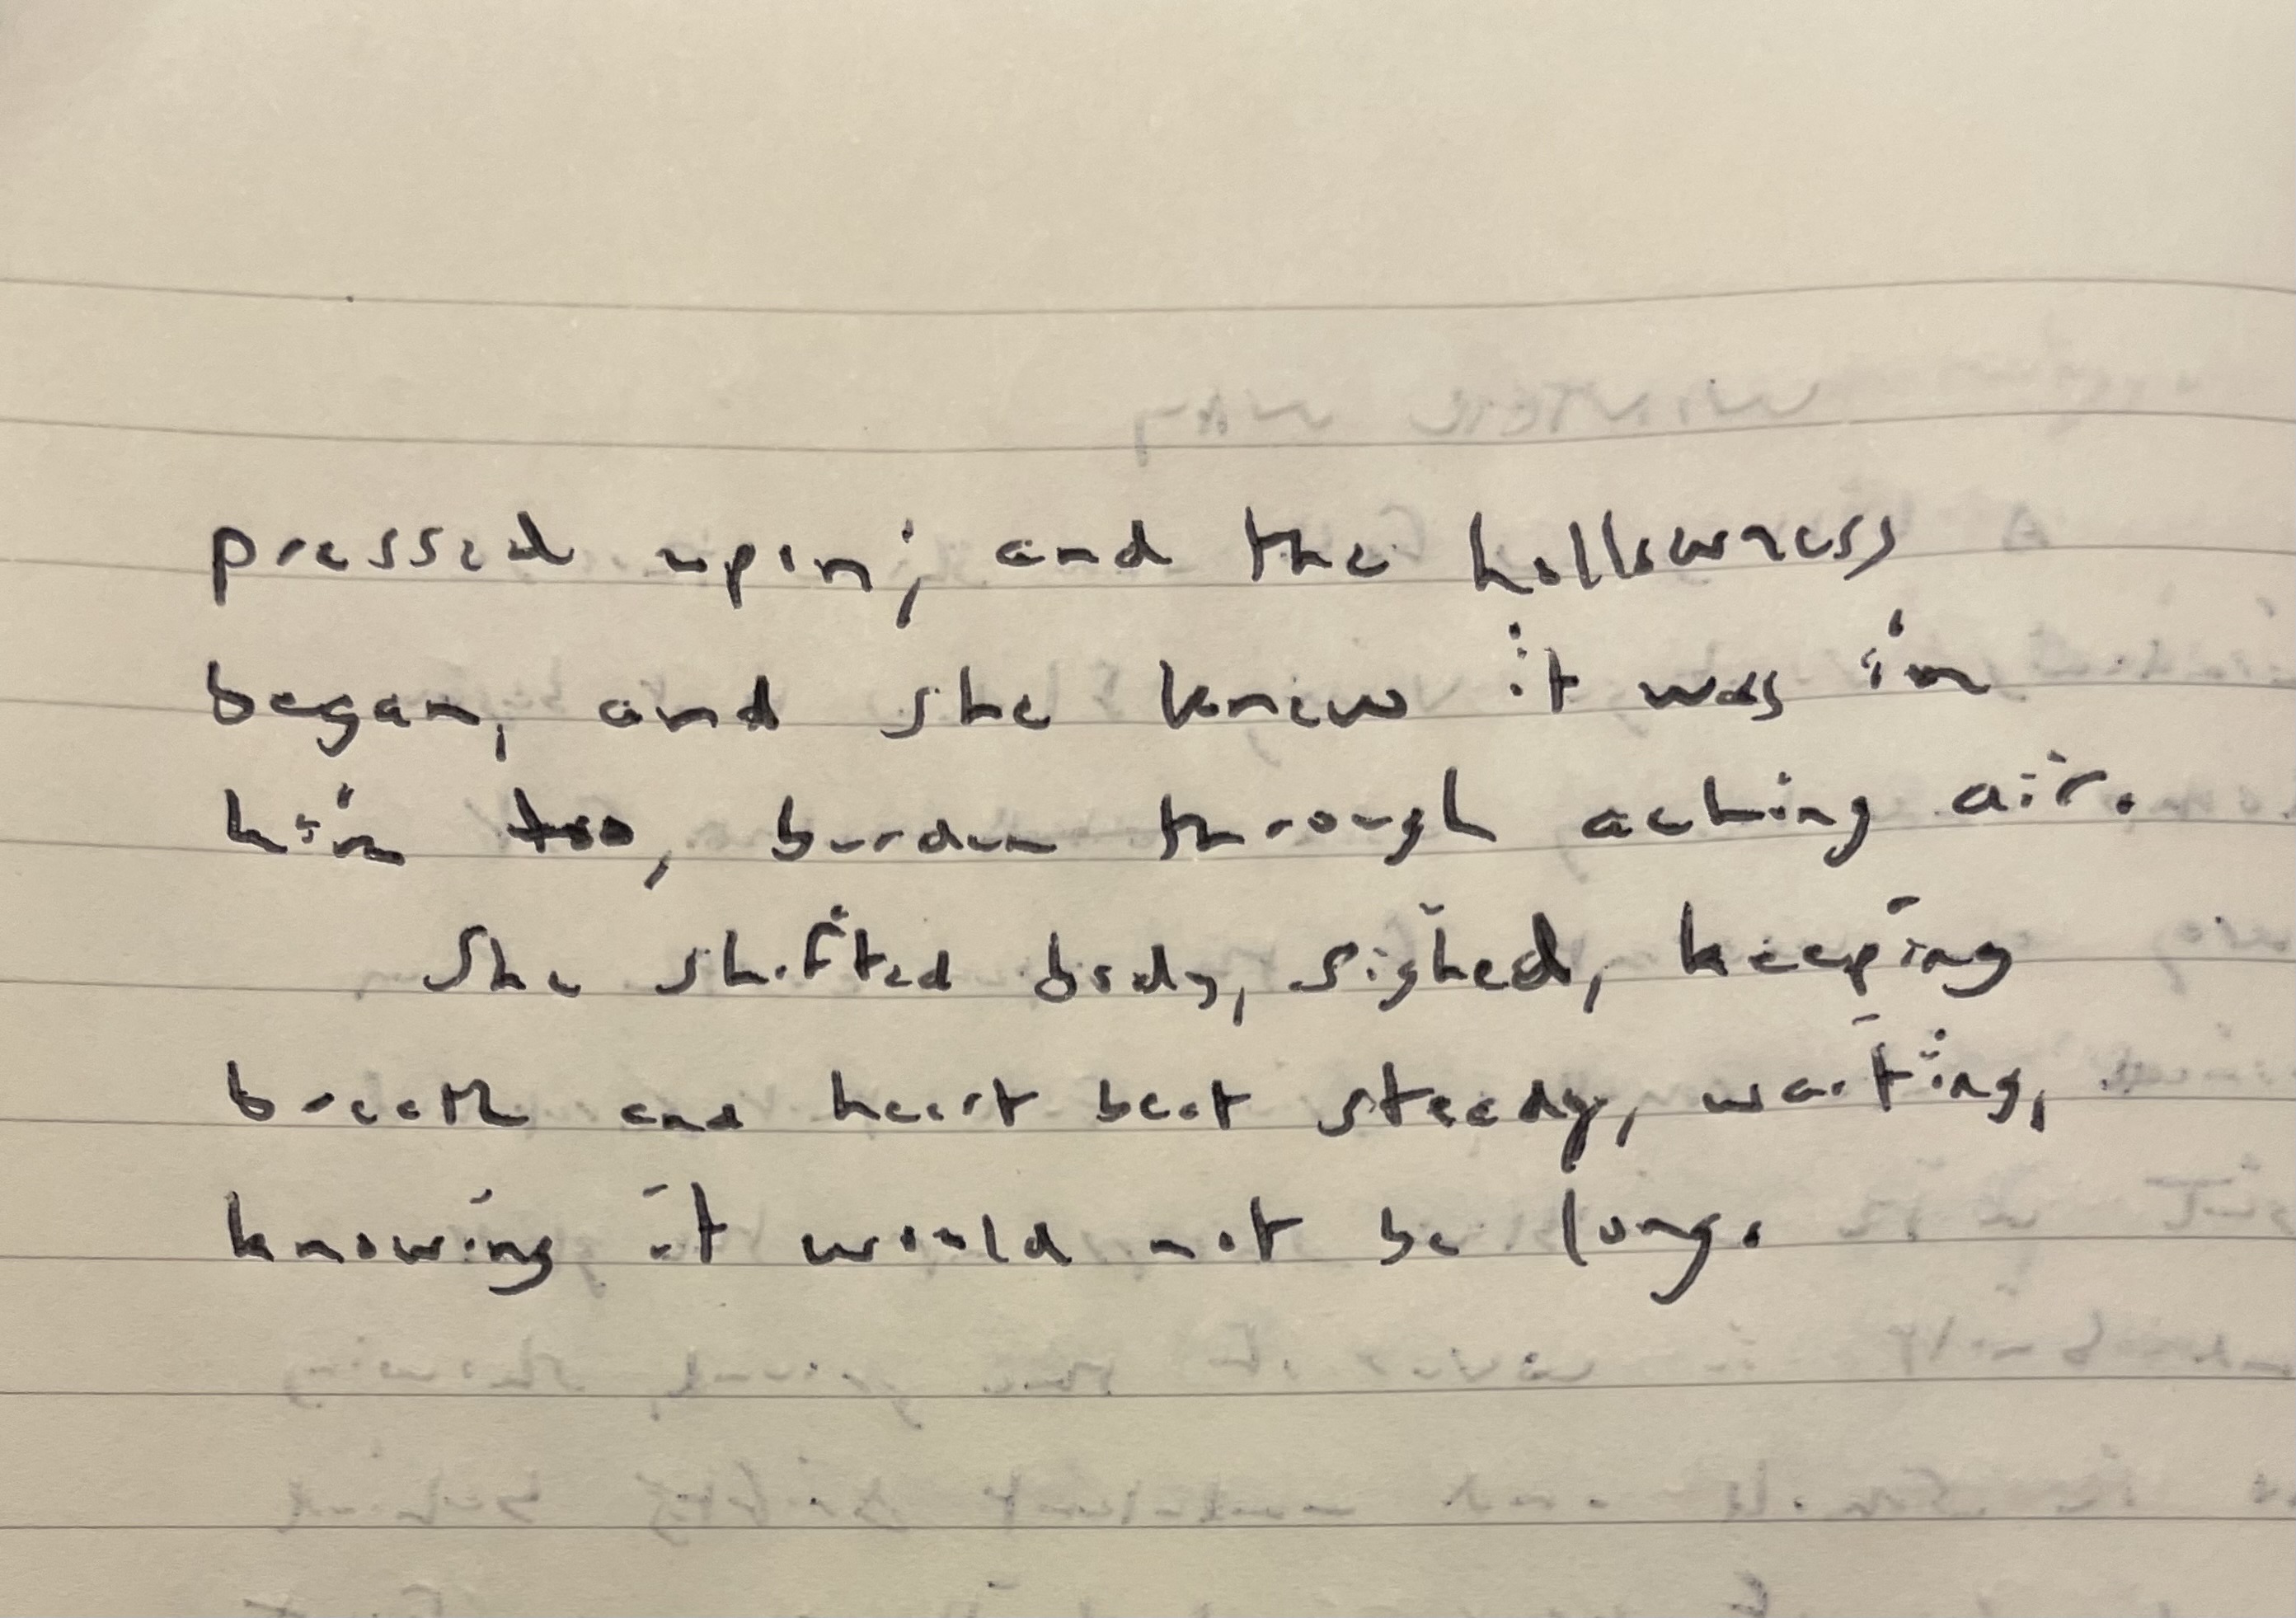 pressed upon; and the hollowness
began, and she knew it was in
him too, burden through aching air.
She shifted body, sighed, keeping
breath and heart beat steady, waiting,
knowing it would not be long.